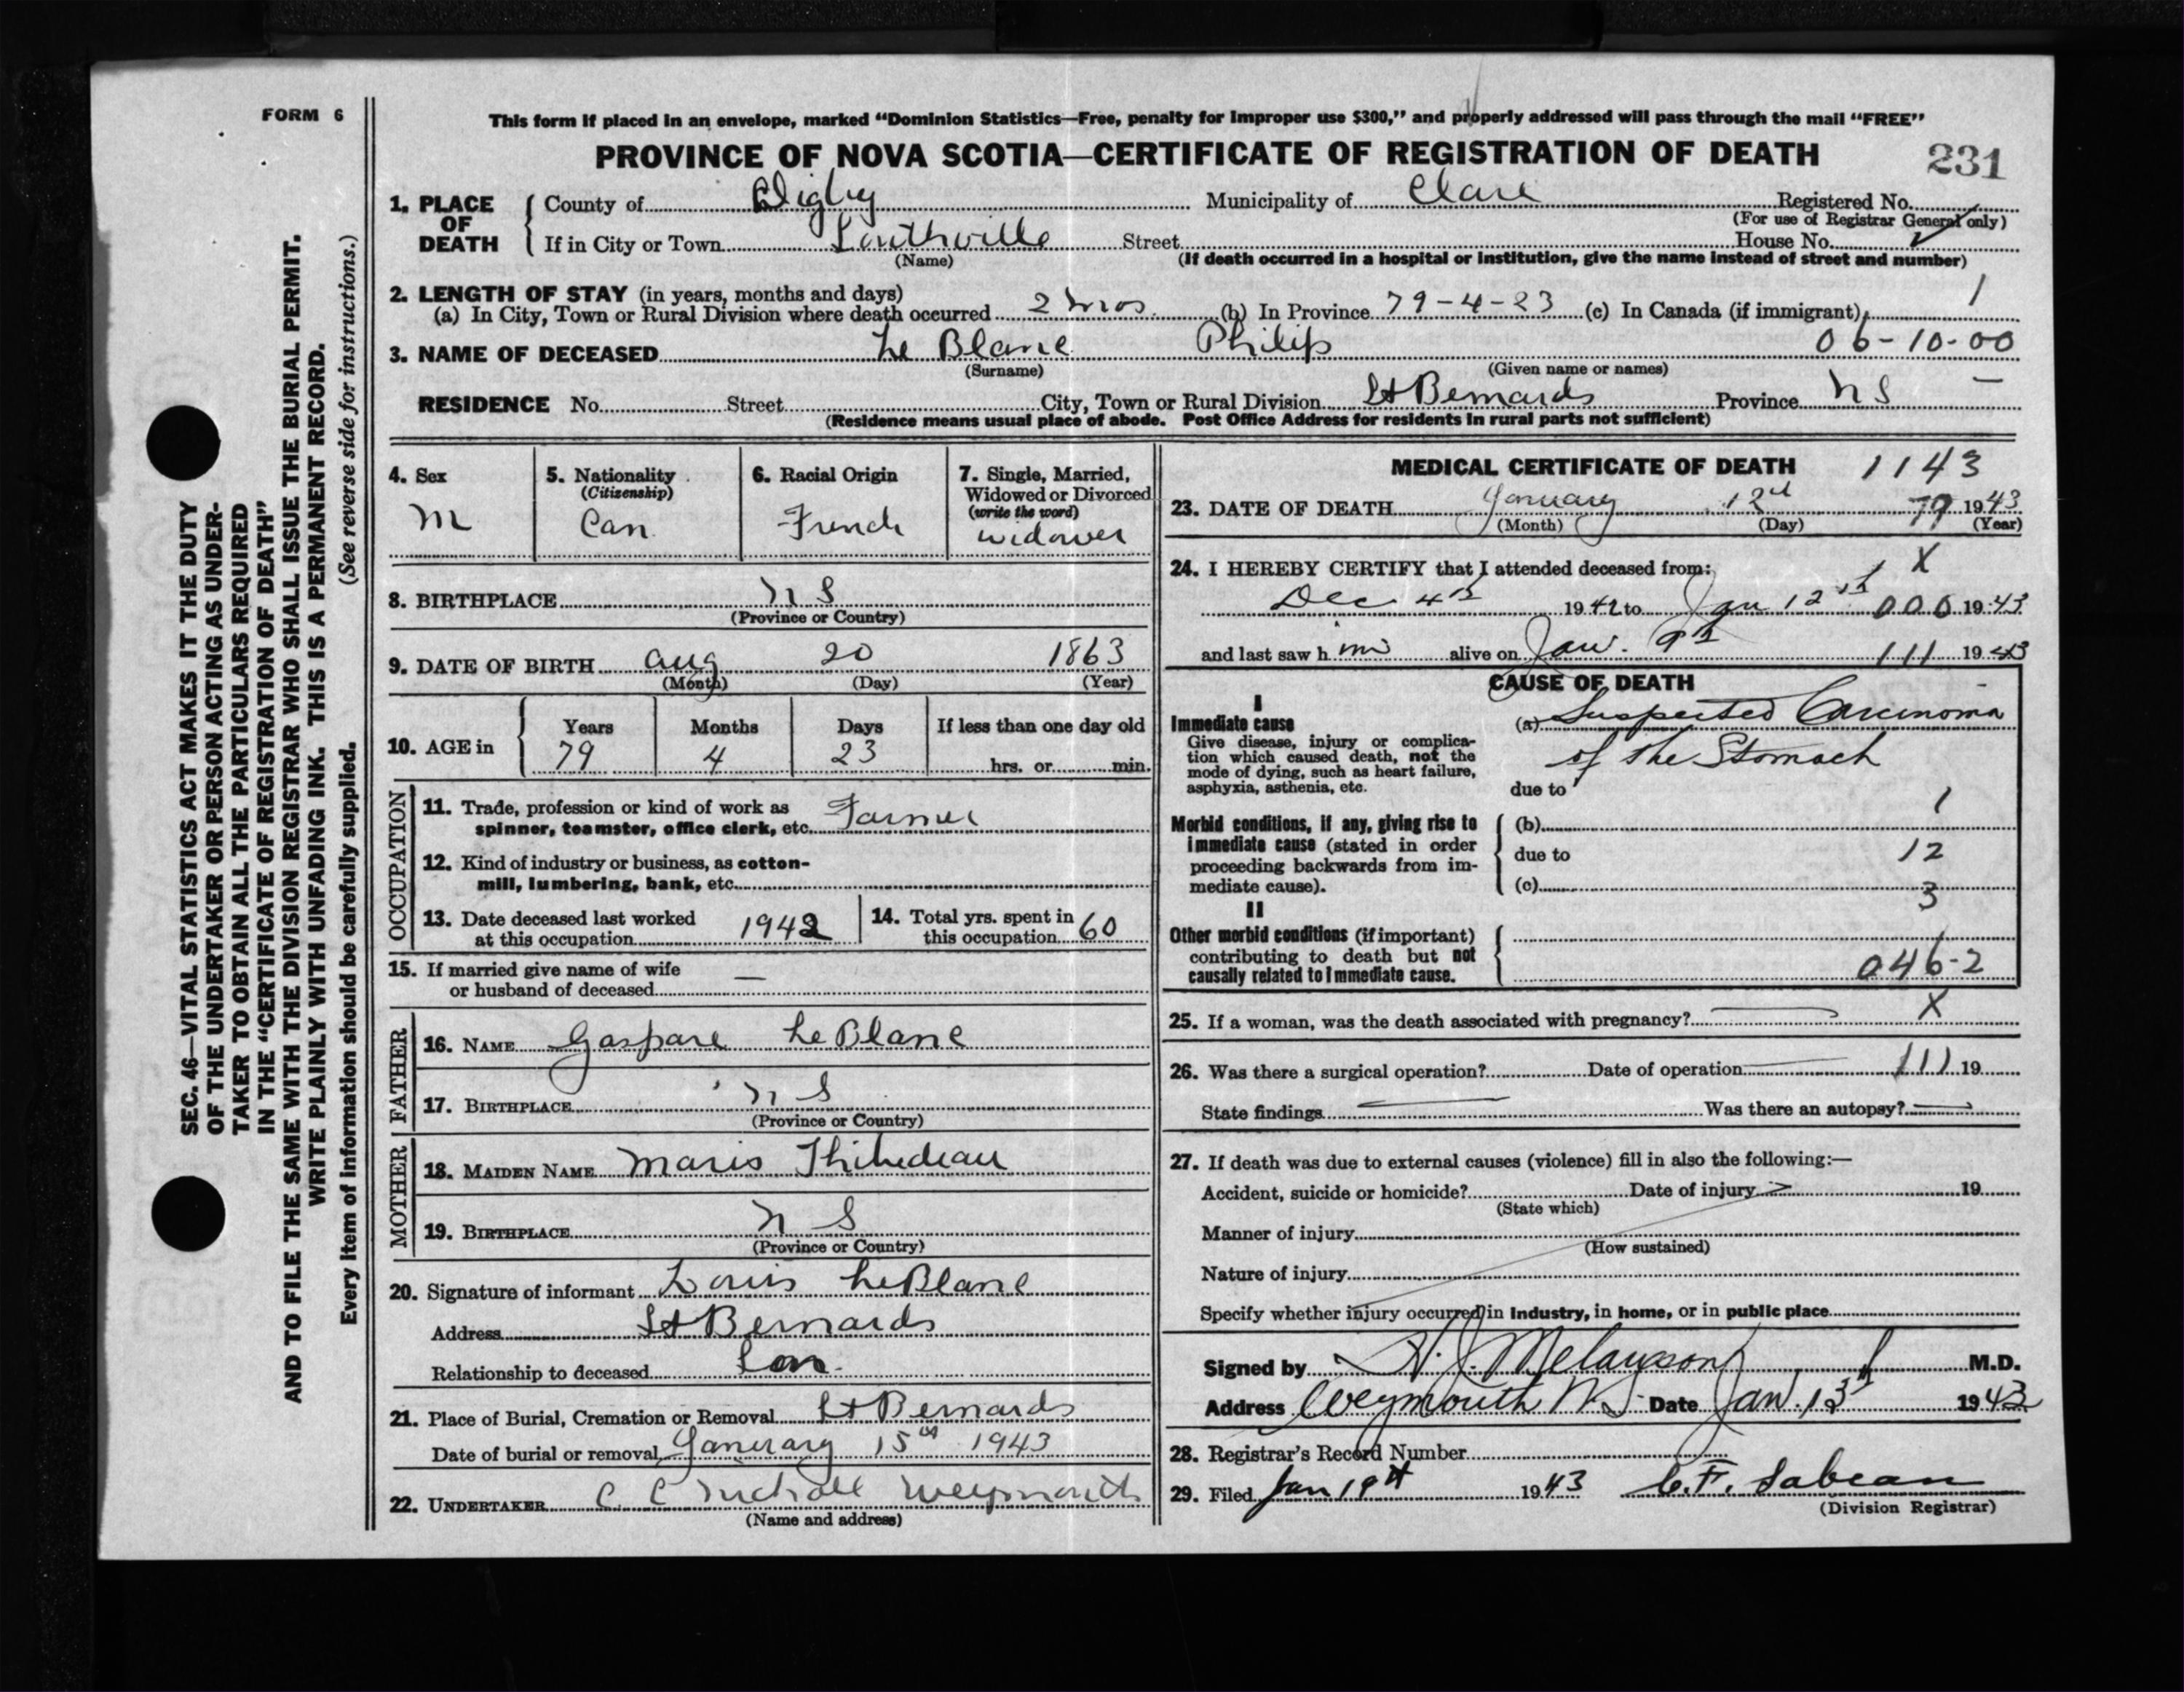 FORM 6
This form if placed in an envelope, marked “Dominion Statistics—Free, penalty for improper use $300,” and properly addressed will pass through the mail “FREE”
PROVINCE OF NOVA SCOTIA—CERTIFICATE OF REGISTRATION OF DEATH
231
SEC. 46—VITAL STATISTICS ACT MAKES IT THE DUTY
OF THE UNDERTAKER OR PERSON ACTING AS UNDER-
TAKER TO OBTAIN ALL THE PARTICULARS REQUIRED
IN THE “CERTIFICATE OF REGISTRATION OF DEATH”
AND TO FILE THE SAME WITH THE DIVISION REGISTRAR WHO SHALL ISSUE THE BURIAL PERMIT.
WRITE PLAINLY WITH UNFADING INK. THIS IS A PERMANENT RECORD.
Every item of information should be carefully supplied. (See reverse side for instructions.)
1. PLACE OF DEATH
County of Digby Municipality of Clare Registered No.
(For use of Registrar General only)
If in City or Town Southville Street House No.
(Name) (If death occurred in a hospital or institution, give the name instead of street and number)
2. LENGTH OF STAY (in years, months and days)
(a) In City, Town or Rural Division where death occurred 2 mos. (b) In Province 79-4-23 (c) In Canada (if immigrant) 1
3. NAME OF DECEASED Le Blanc Philip 06-10-00
(Surname) (Given name or names)
RESIDENCE No. Street City, Town or Rural Division St Bernards Province N S
(Residence means usual place of abode. Post Office Address for residents in rural parts not sufficient)
4. Sex M
5. Nationality (Citizenship) Can
6. Racial Origin French
7. Single, Married, Widowed or Divorced (write the word) widower
8. BIRTHPLACE N S
(Province or Country)
9. DATE OF BIRTH Aug 20 1863
(Month) (Day) (Year)
10. AGE in Years Months Days If less than one day old
79 4 23 hrs. or min.
OCCUPATION
11. Trade, profession or kind of work as
spinner, teamster, office clerk, etc. Farmer
12. Kind of industry or business, as cotton-
mill, lumbering, bank, etc.
13. Date deceased last worked
at this occupation 1942
14. Total yrs. spent in
this occupation 60
15. If married give name of wife
or husband of deceased —
FATHER
16. NAME Gaspare LeBlanc
17. BIRTHPLACE N S
(Province or Country)
MOTHER
18. MAIDEN NAME Marie Thibedeau
19. BIRTHPLACE N S
(Province or Country)
20. Signature of informant Louis LeBlanc
Address St Bernards
Relationship to deceased Son.
21. Place of Burial, Cremation or Removal St Bernards
Date of burial or removal January 15th 1943
22. UNDERTAKER C C Weymouth
(Name and address)
MEDICAL CERTIFICATE OF DEATH 1143
23. DATE OF DEATH January 12th 79 1943
(Month) (Day) (Year)
24. I HEREBY CERTIFY that I attended deceased from: X
Dec 4th 1942 to Jan 12th 000 1943
and last saw him alive on Jan. 9th 111 1943
CAUSE OF DEATH
I
Immediate cause
Give disease, injury or complica-
tion which caused death, not the
mode of dying, such as heart failure,
asphyxia, asthenia, etc.
(a) Suspected Carcinoma
of the Stomach
due to
1
Morbid conditions, if any, giving rise to
immediate cause (stated in order
proceeding backwards from im-
mediate cause).
(b)
due to 12
(c) 3
II
Other morbid conditions (if important)
contributing to death but not
causally related to immediate cause.
046-2
25. If a woman, was the death associated with pregnancy? X
26. Was there a surgical operation? Date of operation 111 19
State findings Was there an autopsy?
27. If death was due to external causes (violence) fill in also the following:—
Accident, suicide or homicide? Date of injury 19
(State which)
Manner of injury
(How sustained)
Nature of injury
Specify whether injury occurred in industry, in home, or in public place
Signed by H. J. M.D.
Address Weymouth N.S. Date Jan. 13th 1943
28. Registrar's Record Number
29. Filed Jan 19th 1943 C. F. Sabean
(Division Registrar)